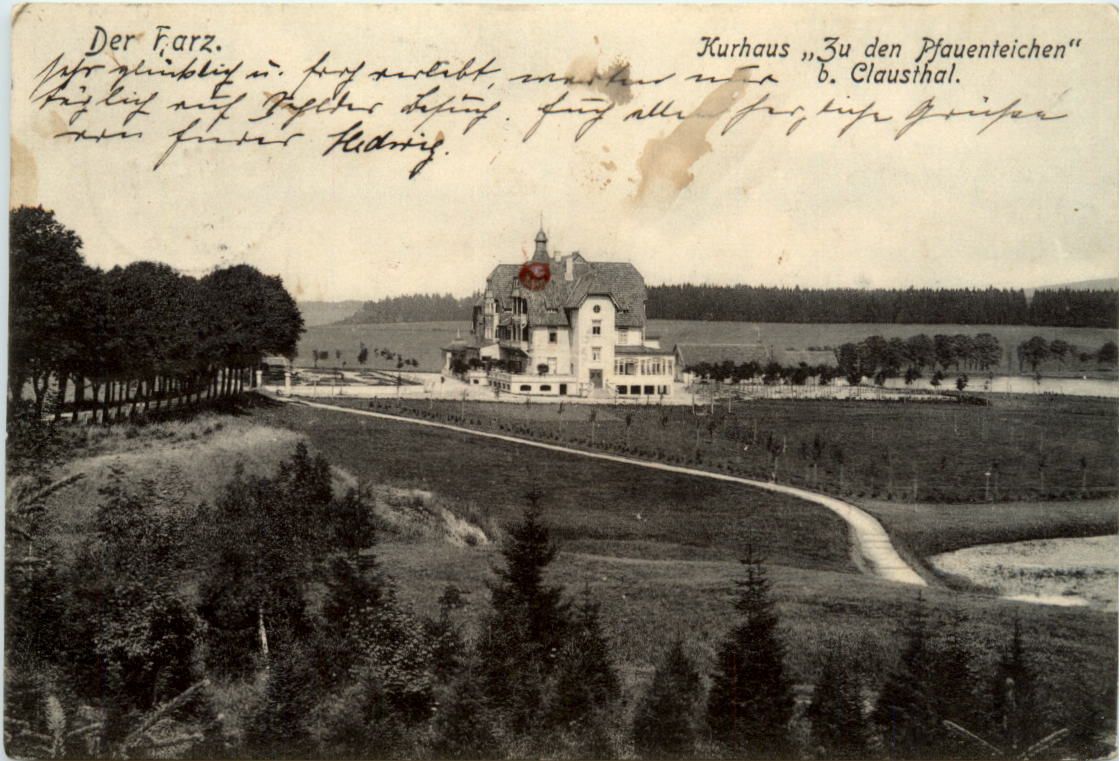 Der Harz.
Kurhaus „Zu den Pfauenteichen“
b. Clausthal.
sehr glücklich u. froh verlebt, werden nur
täglich auf Besuch. Euch alle herzliche Grüße
von Eurer Hedwig.